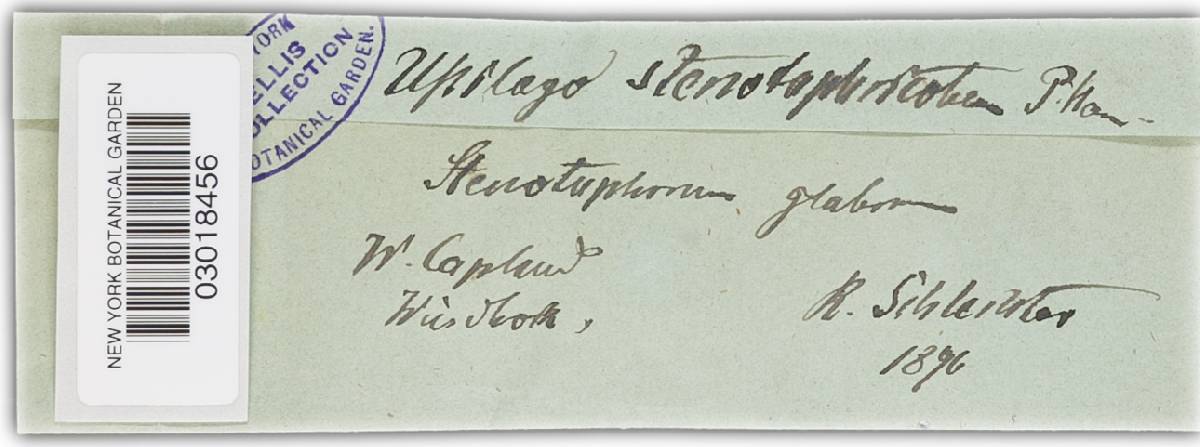 NEW YORK BOTANICAL GARDEN
03018456
YORK
ELLIS
COLLECTION
BOTANICAL GARDEN.
Ustilago Stenotaphricola P. Hen-
Stenotaphrum glabrum
W. Capland
Windhoek,
R. Schlechter
1896